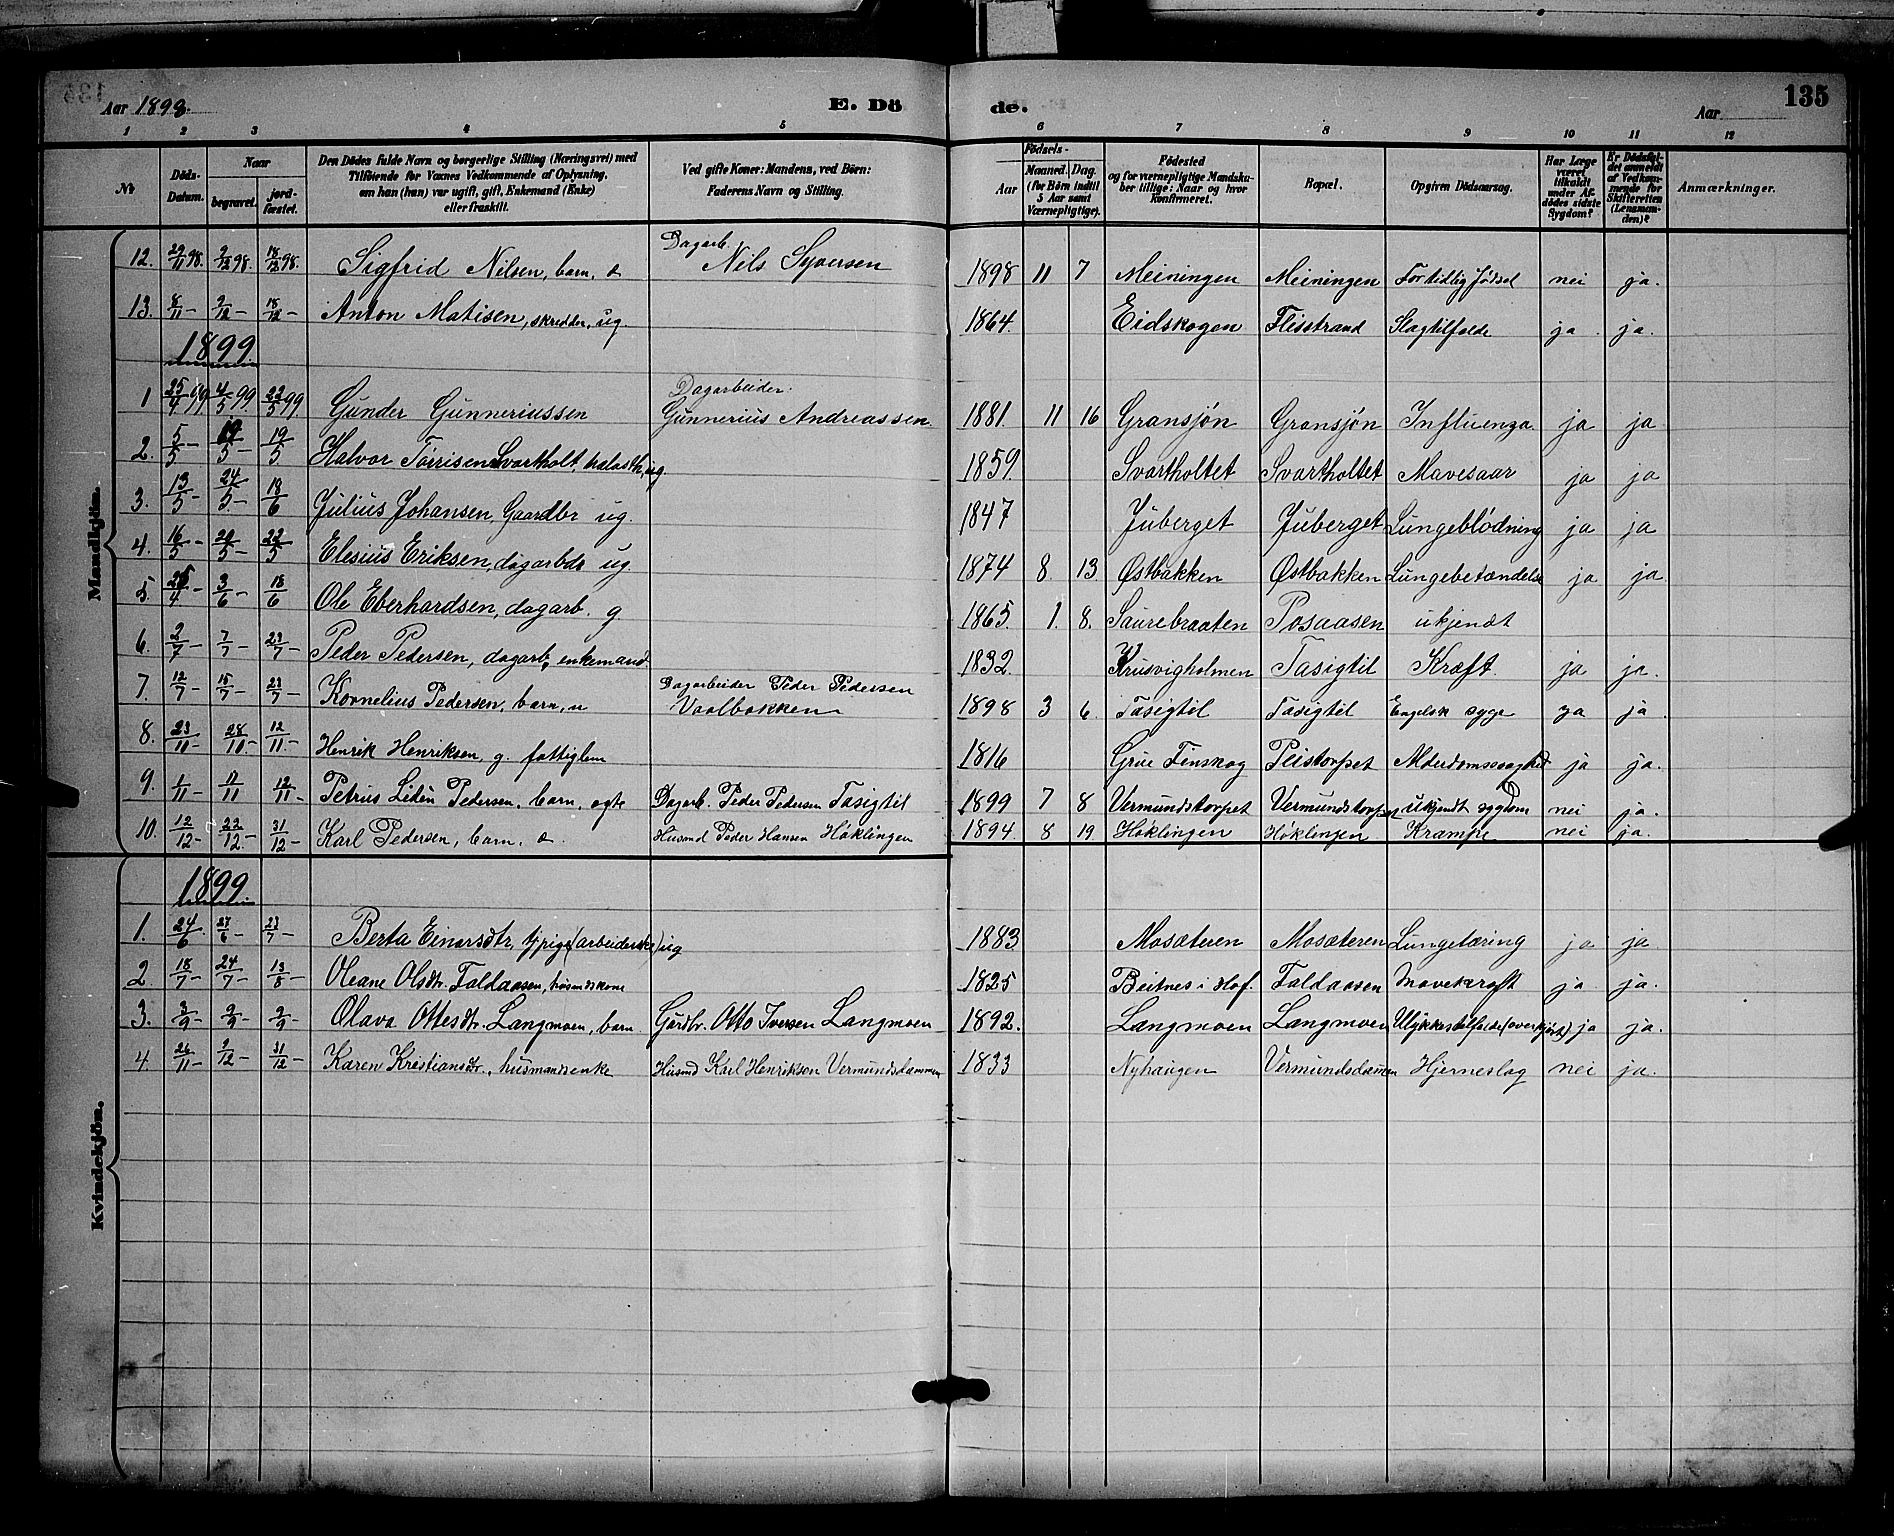 Aar 1898. E. Dö de. Aar 135
1 2 3 4 5 6 7 8 9 10 11 12
No Döds-Datum. Naar begravet. jordfæstet. Den Dödes fulde Navn og borgerlige Stilling (Næringsvei) med Tilföiende for Voxnes Vedkommende af Oplysning, om han (hun) var ugift, gift, Enkemand (Enke) eller fraskilt. Ved gifte Koner: Mandens, ved Börn: Faderens Navn og Stilling. Födsels- Aar Maaned. Dag. (for Börn indtil 5 Aar samt Værnepligtige). Födested og for værnepligtige Mandskaber tillige: Naar og hvor konfirmeret. Bopæl. Opgiven Dödsaarsag. Har Læge været tilkaldt under Afdödes sidste Sygdom? Er Dödsfaldet anmeldt af Vedkommende for Skifteretten (Lensmanden)? Anmærkninger.
Mandkjön.
12. 29/11 98. 9/12 98. 18/12 98. Sigfrid Nilsen, barn, Dagarb. Nils Syversen 1898 11 7 Meiningen Meiningen For tidlig födsel nei ja.
13. 8/11 – 9/12 – 18/12 – Anton Matisen, skrædder, ug. 1864. Eidskogen Flisstrand Slagtilfælde ja ja.
1899
1 25/4 99 4/5 99 22/5 99 Gunder Gunneriussen Dagarbeider: Gunnerius Andreassen 1881. 11 16 Gransjøn Gransjøn Influenza ja ja
2. 5/5 – 19/5 – 19/5 Halvor Tørrisen Svartholt, ug 1859. Svartholtet Svartholtet Mavesaar ja ja
3. 13/5 – 24/5 – 18/6 Julius Johansen, Gaardbr ug. 1847 Juberget Juberget Lungeblödning ja ja
4. 16/5 – 20/5 – 22/5 Elesius Eriksen, dagarbdr ug 1874 8. 13 Østbakken Østbakken Lungebetændelse ja ja
5 25/4 – 3/6 – 18/6 Ole Eberhardsen, dagarb. g. 1865. 1. 8. Saurebraaten Posaasen ukjendt
6. 2/7 – 7/7 – 23/7 – Peder Pedersen, dagarb, enkemand 1832. Krusvigholmen Tasigtil Kræft. ja ja.
7. 12/7 – 15/7 – 23/7 – Kornelius Pedersen, barn, u Dagarbeider Peder Pedersen Vaalbakken 1898 3 6. Tasigtil Tasigtil Engelsk syge ja ja.
8. 23/10 – 28/10 – 12/11 – Henrik Henriksen, g. fattiglem 1816 Grue Finskog Peistorpet Alderdomssvaghed ja ja.
9. 1/11 – 11/11 12/11 – Petrus Liden Pedersen, barn, ægte Dagarb. Peder Pedersen Tasigtil 1899 7 8 Vermundstorpet Vermundstorpet ukjendt sygdom nei ja.
10. 12/12 – 22/12 – 31/12 – Karl Pedersen, barn. Husmd Peder Hansen Höklingen 1894. 8 19 Höklingen Höklingen Krampe nei ja.
Kvindekjön.
1899
1. 24/6 27/6 – 23/7 – Berta Einarsdtr, (arbeiderske) ug 1883 Mosæteren Mosæteren Lungetæring ja ja
2 18/7 – 24/7 – 13/8 – Oleane Olsdtr. Faldaasen, husmdskone 1825 Beitnes i Hof. Faldaasen Mavekræft ja ja.
3. 3/9 – 9/9 – 9/9 – Olava Ottesdtr. Langmoen, barn Gardbr. Otto Iversen Langmoen 1892. Langmoen Langmoen Ulykkestilfælde (overkjört) ja ja.
4. 26/11 – 9/12 – 31/12 – Karen Kristiansdtr., husmandsenke Husmd Karl Henrikson Vermundsdammen 1833 Nyhaugen Vermundsdammen Hjerneslag nei ja.